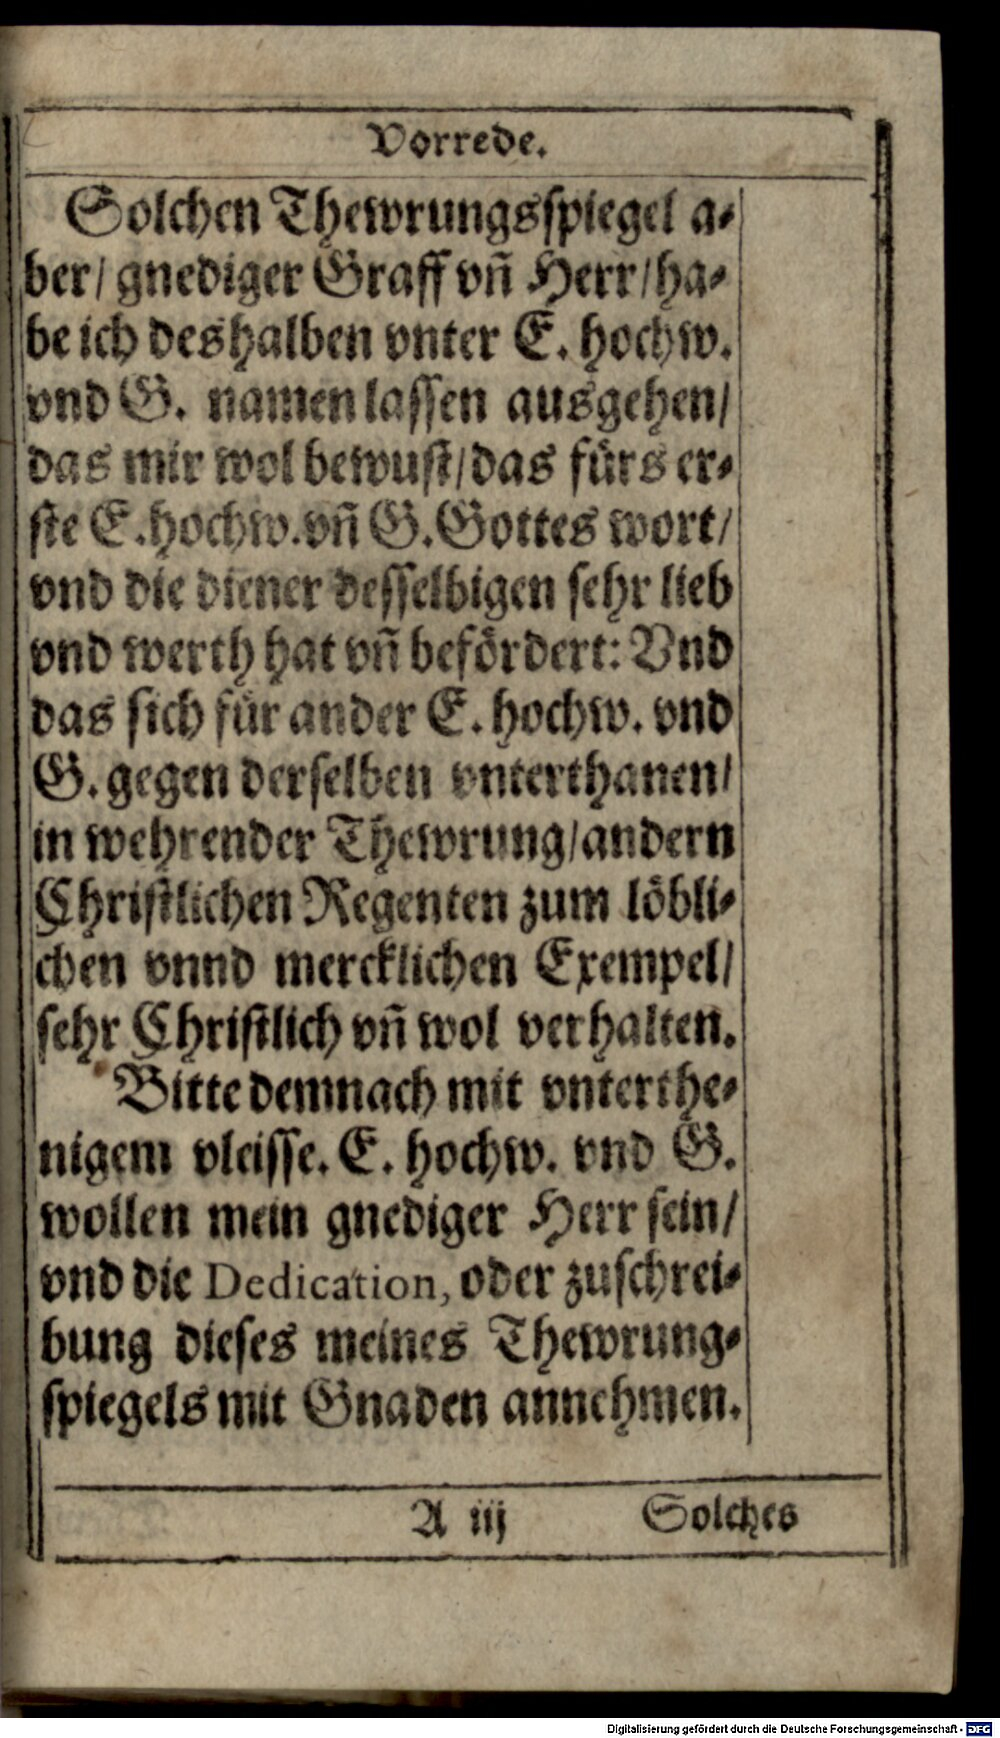 Vorrede.
Solchen Thewrungsspiegel a⸗
ber/ gnediger Graff vñ Herr/ ha⸗
be ich deshalben vnter E. hochw.
vnd G. namen lassen ausgehen/
das mir wol bewust/ das fürs er⸗
ste E. hochw. vñ G. Gottes wort/
vnd die diener desselbigen sehr lieb
vnd werth hat vñ befördert: Vnd
das sich für ander E. hochw. vnd
G. gegen derselben vnterthanen/
in wehrender Thewrung/ andern
Christlichen Regenten zum löbli⸗
chen vnnd mercklichen Exempel/
sehr Christlich vñ wol verhalten.
Bitte demnach mit vnterthe⸗
nigem vleisse. E. hochw. vnd G.
wollen mein gnediger Herr sein/
vnd die Dedication, oder zuschrei⸗
bung dieses meines Thewrung⸗
spiegels mit Gnaden annehmen.
A iij Solches
Digitalisierung gefördert durch die Deutsche Forschungsgemeinschaft - DFG